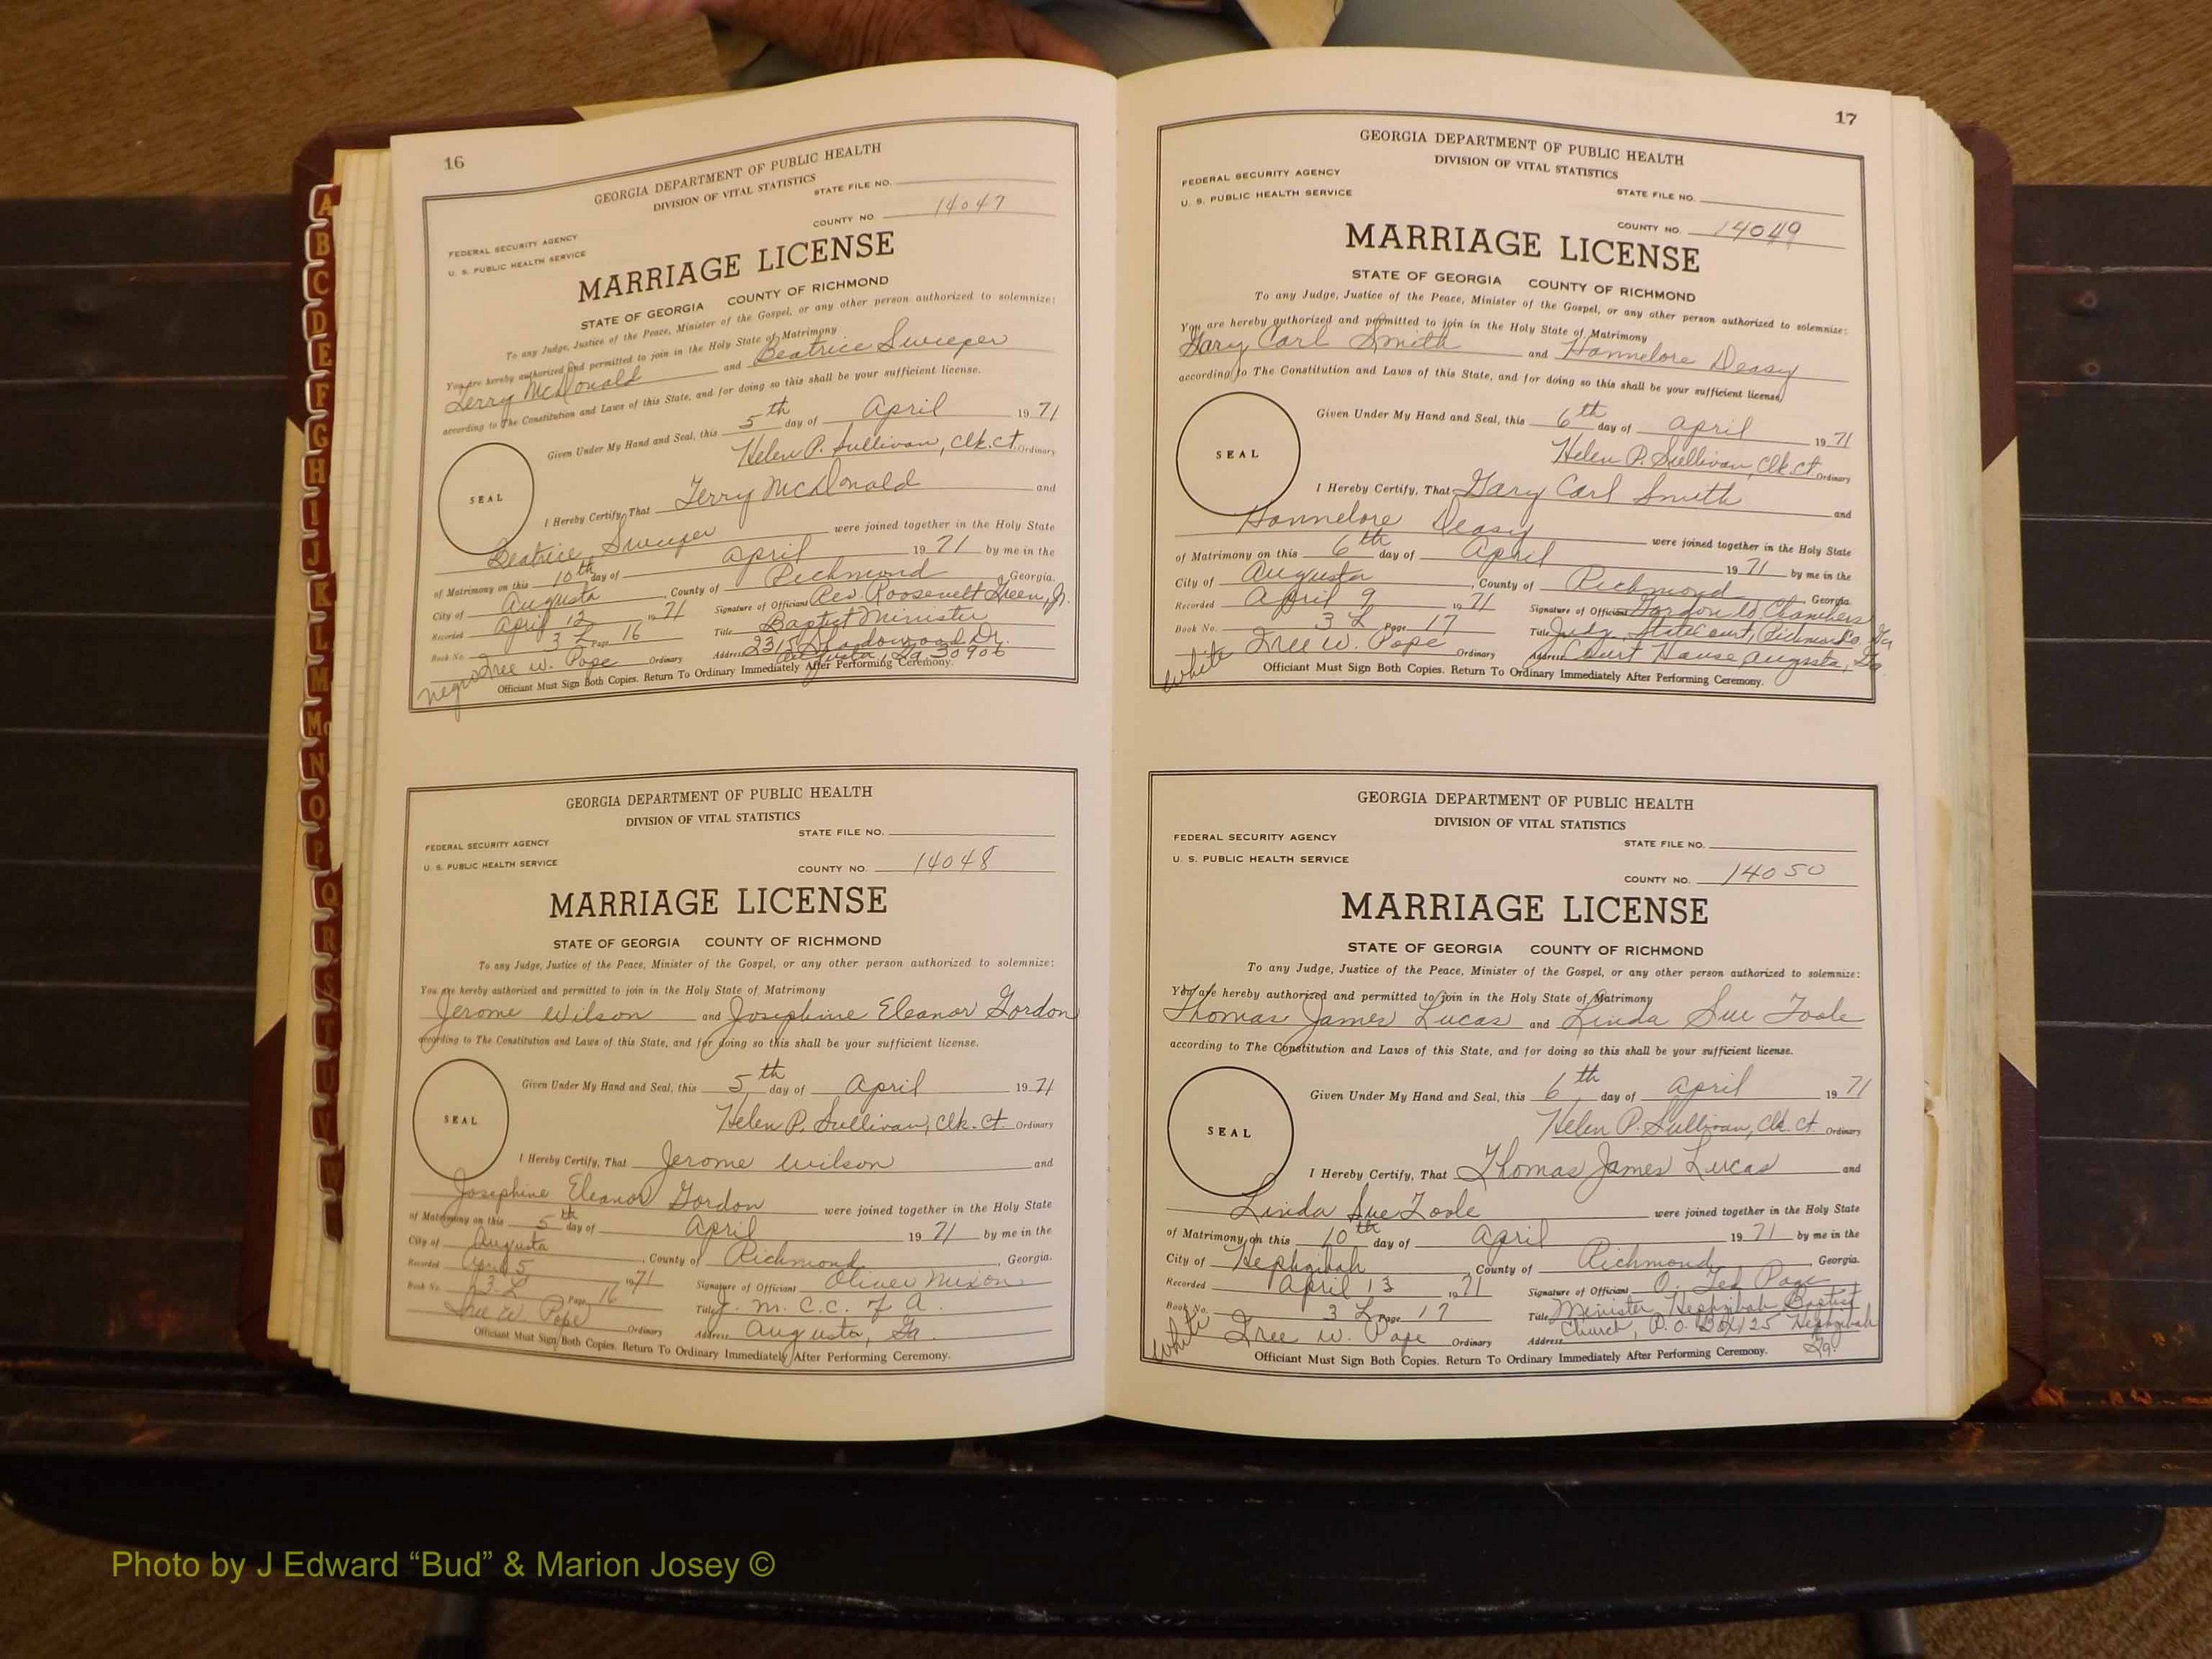 A
B
C
D
E
F
G
H
I
J
K
L
M
Mc
N
O
P
Q
R
S
T
U
V
W
16
GEORGIA DEPARTMENT OF PUBLIC HEALTH
DIVISION OF VITAL STATISTICS
STATE FILE NO.
COUNTY NO. 14047
FEDERAL SECURITY AGENCY
U. S. PUBLIC HEALTH SERVICE
MARRIAGE LICENSE
STATE OF GEORGIA COUNTY OF RICHMOND
To any Judge, Justice of the Peace, Minister of the Gospel, or any other person authorized to solemnize:
You are hereby authorized and permitted to join in the Holy State of Matrimony
Terry McDonald and Beatrice Sweeper
according to The Constitution and Laws of this State, and for doing so this shall be your sufficient license.
Given Under My Hand and Seal, this 5th day of April 1971
Helen P. Sullivan, Clk. Ct. Ordinary
SEAL
I Hereby Certify, That Terry McDonald and
Beatrice Sweeper were joined together in the Holy State
of Matrimony on this 10th day of April 1971 by me in the
City of Augusta, County of Richmond, Georgia.
Recorded April 12 1971 Signature of Officiant Rev. Roosevelt Green, Jr.
Book No. 3 L Page 16 Title Baptist Minister
Tree W. Pope Ordinary Address 2315 Shadowood Dr.
Augusta, Ga 30906
negro
Officiant Must Sign Both Copies. Return To Ordinary Immediately After Performing Ceremony.
GEORGIA DEPARTMENT OF PUBLIC HEALTH
DIVISION OF VITAL STATISTICS
STATE FILE NO.
FEDERAL SECURITY AGENCY
U. S. PUBLIC HEALTH SERVICE
COUNTY NO. 14048
MARRIAGE LICENSE
STATE OF GEORGIA COUNTY OF RICHMOND
To any Judge, Justice of the Peace, Minister of the Gospel, or any other person authorized to solemnize:
You are hereby authorized and permitted to join in the Holy State of Matrimony
Jerome Wilson and Josephine Eleanor Gordon
according to The Constitution and Laws of this State, and for doing so this shall be your sufficient license.
Given Under My Hand and Seal, this 5th day of April 1971
Helen P. Sullivan, Clk. Ct. Ordinary
SEAL
I Hereby Certify, That Jerome Wilson and
Josephine Eleanor Gordon were joined together in the Holy State
of Matrimony on this 5th day of April 1971 by me in the
City of Augusta, County of Richmond, Georgia.
Recorded April 5 1971 Signature of Officiant Oliver Mixon
Book No. 3 L Page 16 Title J. M. C. C. of A.
Tree W. Pope Ordinary Address Augusta, Ga.
Officiant Must Sign Both Copies. Return To Ordinary Immediately After Performing Ceremony.
17
GEORGIA DEPARTMENT OF PUBLIC HEALTH
DIVISION OF VITAL STATISTICS
FEDERAL SECURITY AGENCY
U. S. PUBLIC HEALTH SERVICE
STATE FILE NO.
COUNTY NO. 14049
MARRIAGE LICENSE
STATE OF GEORGIA COUNTY OF RICHMOND
To any Judge, Justice of the Peace, Minister of the Gospel, or any other person authorized to solemnize:
You are hereby authorized and permitted to join in the Holy State of Matrimony
Gary Carl Smith and Hannelore Deasy
according to The Constitution and Laws of this State, and for doing so this shall be your sufficient license.
Given Under My Hand and Seal, this 6th day of April 1971
Helen P. Sullivan, Clk. Ct. Ordinary
SEAL
I Hereby Certify, That Gary Carl Smith and
Hannelore Deasy were joined together in the Holy State
of Matrimony on this 6th day of April 1971 by me in the
City of Augusta, County of Richmond, Georgia
Recorded April 9 1971 Signature of Officiant Gordon W. Chambers
Book No. 3 L Page 17 Title Judge, State Court, Richmond Co, Ga
Tree W. Pope Ordinary Address Court House Augusta, Ga.
white
Officiant Must Sign Both Copies. Return To Ordinary Immediately After Performing Ceremony.
GEORGIA DEPARTMENT OF PUBLIC HEALTH
DIVISION OF VITAL STATISTICS
FEDERAL SECURITY AGENCY
U. S. PUBLIC HEALTH SERVICE
STATE FILE NO.
COUNTY NO. 14050
MARRIAGE LICENSE
STATE OF GEORGIA COUNTY OF RICHMOND
To any Judge, Justice of the Peace, Minister of the Gospel, or any other person authorized to solemnize:
You are hereby authorized and permitted to join in the Holy State of Matrimony
Thomas James Lucas and Linda Sue Toole
according to The Constitution and Laws of this State, and for doing so this shall be your sufficient license.
Given Under My Hand and Seal, this 6th day of April 1971
Helen P. Sullivan, Clk. Ct. Ordinary
SEAL
I Hereby Certify, That Thomas James Lucas and
Linda Sue Toole were joined together in the Holy State
of Matrimony on this 10th day of April 1971 by me in the
City of Hephzibah, County of Richmond, Georgia.
Recorded April 13 1971 Signature of Officiant O. Ted Page
Book No. 3 L Page 17 Title Minister Hephzibah Baptist
Church, P.O. Box 125 Hephzibah
Tree W. Pope Ordinary Address Ga.
white
Officiant Must Sign Both Copies. Return To Ordinary Immediately After Performing Ceremony.
Photo by J Edward “Bud” & Marion Josey ©